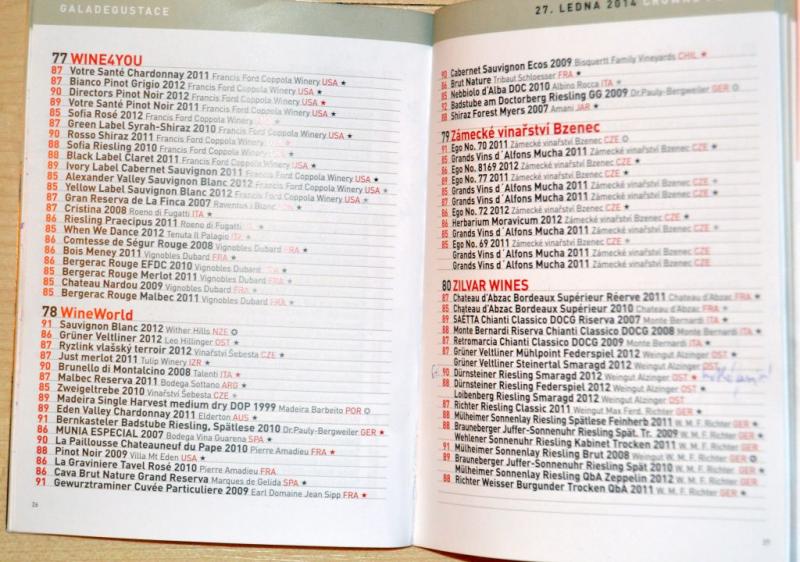 GALADEGUSTACE
77 WINE4YOU
87 Votre Santé Chardonnay 2011 Francis Ford Coppola Winery USA ★
87 Bianco Pinot Grigio 2012 Francis Ford Coppola Winery USA ★
90 Directors Pinot Noir 2012 Francis Ford Coppola Winery USA ★
89 Votre Santé Pinot Noir 2011 Francis Ford Coppola Winery USA ★
85 Sofia Rosé 2012 Francis Ford Coppola Winery
87 Green Label Syrah-Shiraz 2010 Francis Ford Coppola Winery
90 Rosso Shiraz 2011 Francis Ford Coppola Winery
88 Sofia Riesling 2010 Francis Ford Coppola Winery
88 Black Label Claret 2011 Francis Ford Coppola Winery
89 Ivory Label Cabernet Sauvignon 2011 Francis Ford Coppola Winery USA ★
85 Alexander Valley Sauvignon Blanc 2012 Francis Ford Coppola Winery USA ★
85 Yellow Label Sauvignon Blanc 2012 Francis Ford Coppola Winery USA ★
87 Gran Reserva de La Finca 2007 Raventus i Blanc
87 Cristina 2008 Roeno di Fugatti ITA ★
86 Riesling Praecipus 2011 Roeno di Fugatti
85 When We Dance 2012 Tenuta Il Palagio ITA
86 Comtesse de Ségur Rouge 2008 Vignobles Dubard FRA ★
86 Bois Meney 2011 Vignobles Dubard FRA ★
86 Bergerac Rouge EFDC 2010 Vignobles Dubard
85 Bergerac Rouge Merlot 2011 Vignobles Dubard
85 Chateau Nardou 2009 Vignobles Dubard FRA ★
85 Bergerac Rouge Malbec 2011 Vignobles Dubard FRA ★
78 WineWorld
91 Sauvignon Blanc 2012 Wither Hills NZE
86 Grüner Veltliner 2012 Leo Hillinger OST ★
87 Ryzlink vlašský terroir 2012 Vinařství Šebesta CZE ★
87 Just merlot 2011 Tulip Winery IZR ★
90 Brunello di Montalcino 2008 Talenti ITA ★
87 Malbec Reserva 2011 Bodega Sottano ARG ★
85 Zweigeltrebe 2010 Vinařství Šebesta CZE
89 Madeira Single Harvest medium dry DOP 1999 Madeira Barbeito POR
89 Eden Valley Chardonnay 2011 Elderton AUS ★
91 Bernkasteler Badstube Riesling, Spätlese 2010 Dr.Pauly-Bergweiler GER ★
86 MUNIA ESPECIAL 2007 Bodega Vina Guarena SPA ★
90 La Paillousse Chateauneuf du Pape 2010 Pierre Amadieu FRA ★
88 Pinot Noir 2009 Villa Mt Eden USA ★
86 La Graviniere Tavel Rosé 2010 Pierre Amadieu FRA
86 Cava Brut Nature Grand Reserva Marques de Gelida SPA ★
91 Gewurztraminer Cuvée Particuliere 2009 Earl Domaine Jean Sipp FRA ★
26
27. LEDNA 2014
90 Cabernet Sauvignon Ecos 2009 Bisquertt Family Vineyards CHIL ★
86 Brut Nature Tribaut Schloesser FRA ★
85 Nebbiolo d'Alba DOC 2010 Albino Rocca ITA ★
92 Badstube am Doctorberg Riesling GG 2009 Dr.Pauly-Bergweiler GER
88 Shiraz Forest Myers 2007 Amani JAR ★
79 Zámecké vinařství Bzenec
91 Ego No. 70 2011 Zámecké vinařství Bzenec CZE
85 Grands Vins d´Alfons Mucha 2011 Zámecké vinařství Bzenec CZE ★
86 Ego No. 8169 2012 Zámecké vinařství Bzenec CZE ★
89 Ego No. 77 2011 Zámecké vinařství Bzenec CZE ★
85 Grands Vins d´Alfons Mucha 2011 Zámecké vinařství Bzenec CZE ★
85 Grands Vins d´Alfons Mucha 2011 Zámecké vinařství Bzenec CZE ★
86 Ego No. 72 2012 Zámecké vinařství Bzenec CZE ★
86 Herbarium Moravicum 2012 Zámecké vinařství Bzenec CZE ★
85 Grands Vins d´Alfons Mucha 2011 Zámecké vinařství Bzenec CZE ★
85 Ego No. 69 2011 Zámecké vinařství Bzenec CZE ★
Grands Vins d´Alfons Mucha 2011 Zámecké vinařství Bzenec CZE
Grands Vins d´Alfons Mucha 2011 Zámecké vinařství Bzenec CZE
80 ZILVAR WINES
87 Chateau d'Abzac Bordeaux Supérieur Réerve 2011 Chateau d'Abzac FRA ★
85 Chateau d'Abzac Bordeaux Supérieur 2010 Chateau d'Abzac FRA ★
89 SAÉTTA Chianti Classico DOCG Riserva 2007 Monte Bernardi ITA ★
88 Monte Bernardi Riserva Chianti Classico DOCG 2008 Monte Bernardi ITA ★
87 Retromarcia Chianti Classico DOCG 2009 Monte Bernardi ITA ★
87 Grüner Veltliner Mühlpoint Federspiel 2012 Weingut Alzinger OST ★
Grüner Veltliner Steinertal Smaragd 2012 Weingut Alzinger OST
90 Dürnsteiner Riesling Smaragd 2012 Weingut Alzinger OST ★
88 Dürnsteiner Riesling Federspiel 2012 Weingut Alzinger OST ★
Loibenberg Riesling Smaragd 2012 Weingut Alzinger OST
87 Richter Riesling Classic 2011 Weingut Max Ferd. Richter GER ★
88 Mülheimer Sonnenlay Riesling Spätlese Feinherb 2011 W. M. F. Richter GER ★
88 Brauneberger Juffer-Sonnenuhr Riesling Spät. Tr. 2009 W. M. F. Richter GER ★
Wehlener Sonnenuhr Riesling Kabinet Trocken 2011 W. M. F. Richter GER
91 Mülheimer Sonnenlay Riesling Brut 2008 Weingut W. M. F. Richter GER
89 Brauneberger Juffer-Sonnenuhr Riesling Spät 2010 W. M. F. Richter GER ★
Mülheimer Sonnenlay Riesling QbA Zeppelin 2012 W. M. F. Richter GER
88 Richter Weisser Burgunder Trocken QbA 2011 W. M. F. Richter GER ★